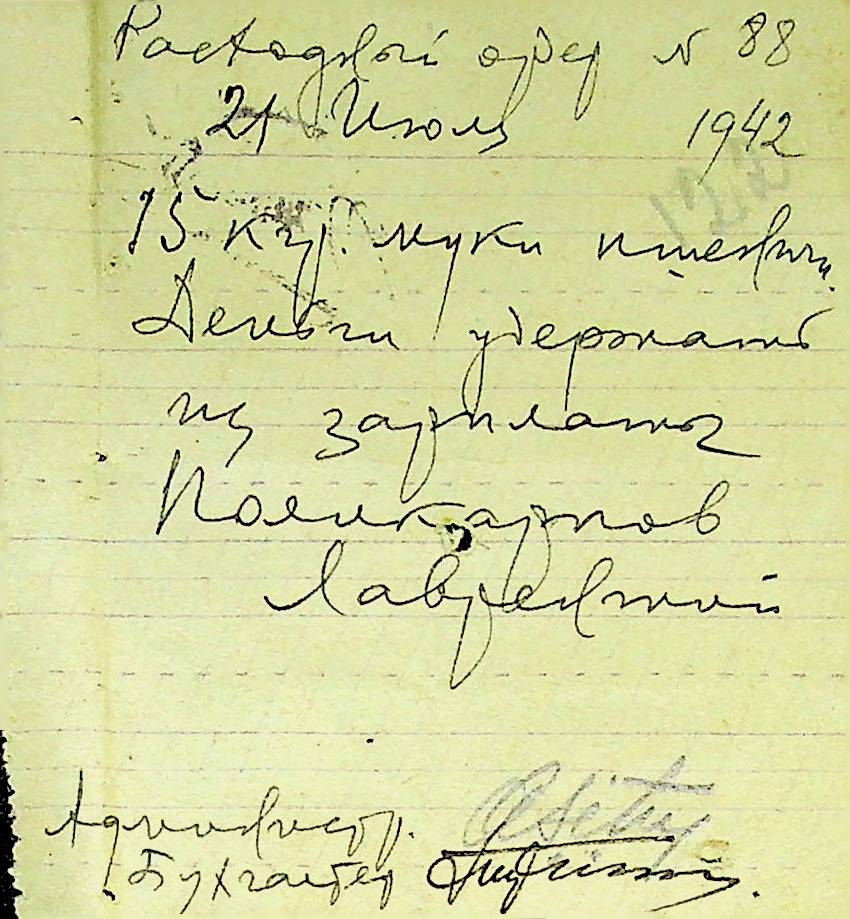 Расходный ордер N 88
21 Июля 1942
15 кгр. муки пшенич.
Деньги удержано
из зарплаты
Поликарпов
Лаврентий
Администр.
Бухгалтер